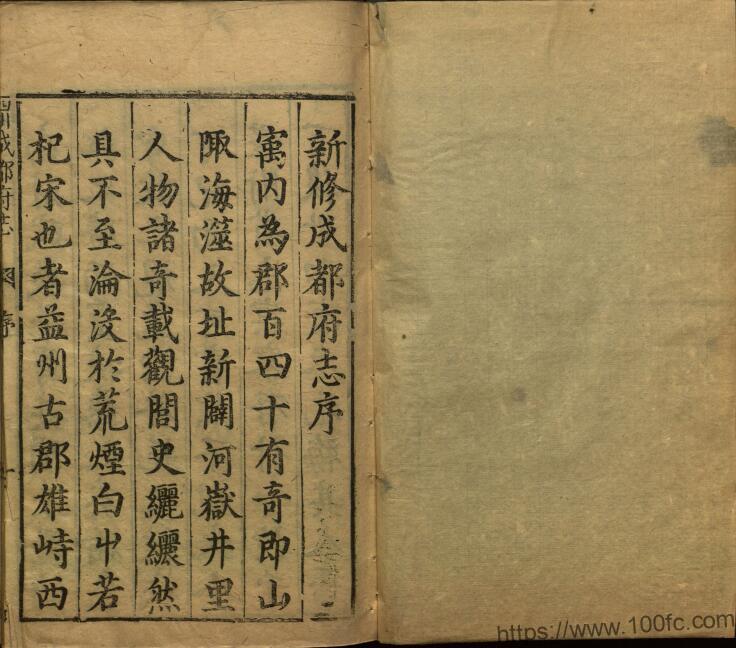 新修成都府志序
寓内為郡百四十有奇即山
陬海澨故址新闢河嶽井里
人物諸奇載觀閭史纚纚然
具不至淪没於荒煙白屮若
杞宋也者益州古郡雄峙西
成都府志
序
https://www.100fc.com